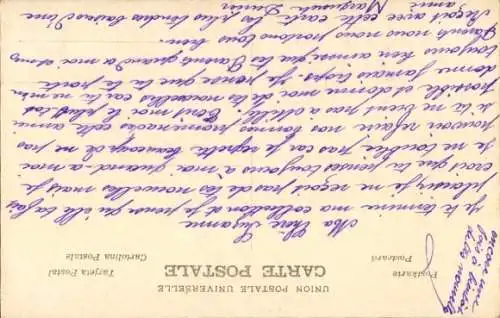 UNION POSTALE UNIVERSELLE
CARTE POSTALE
Postkarte
Postcard
Tarjeta Postal
Cartolina Postale
Ma chère Suzanne
Je termine ma collection et je pense que elle te fais
plaisir je ne reçois pas de tes nouvelles mais je
crois que tu penses toujours a moi quand-a moi
je ne t'oublie pas car je regrette beaucoup de ne pas
pouvoir refaire nos bonnes promenades cette année
si tu ne viens pas a
Ecris moi le plus tot
possible et donne moi de tes nouvelles car tu n'en
donne jamais trops. Je pense que ta la porte
toujours bien ainsi que tes Parents quand a moi et mes
Parents nous nous portons tous bien.
Reçoit avec cette carte les plus tendres baisers d'une
amie
Marguerite
encore une
fois a
bientot
de tes nouvelles